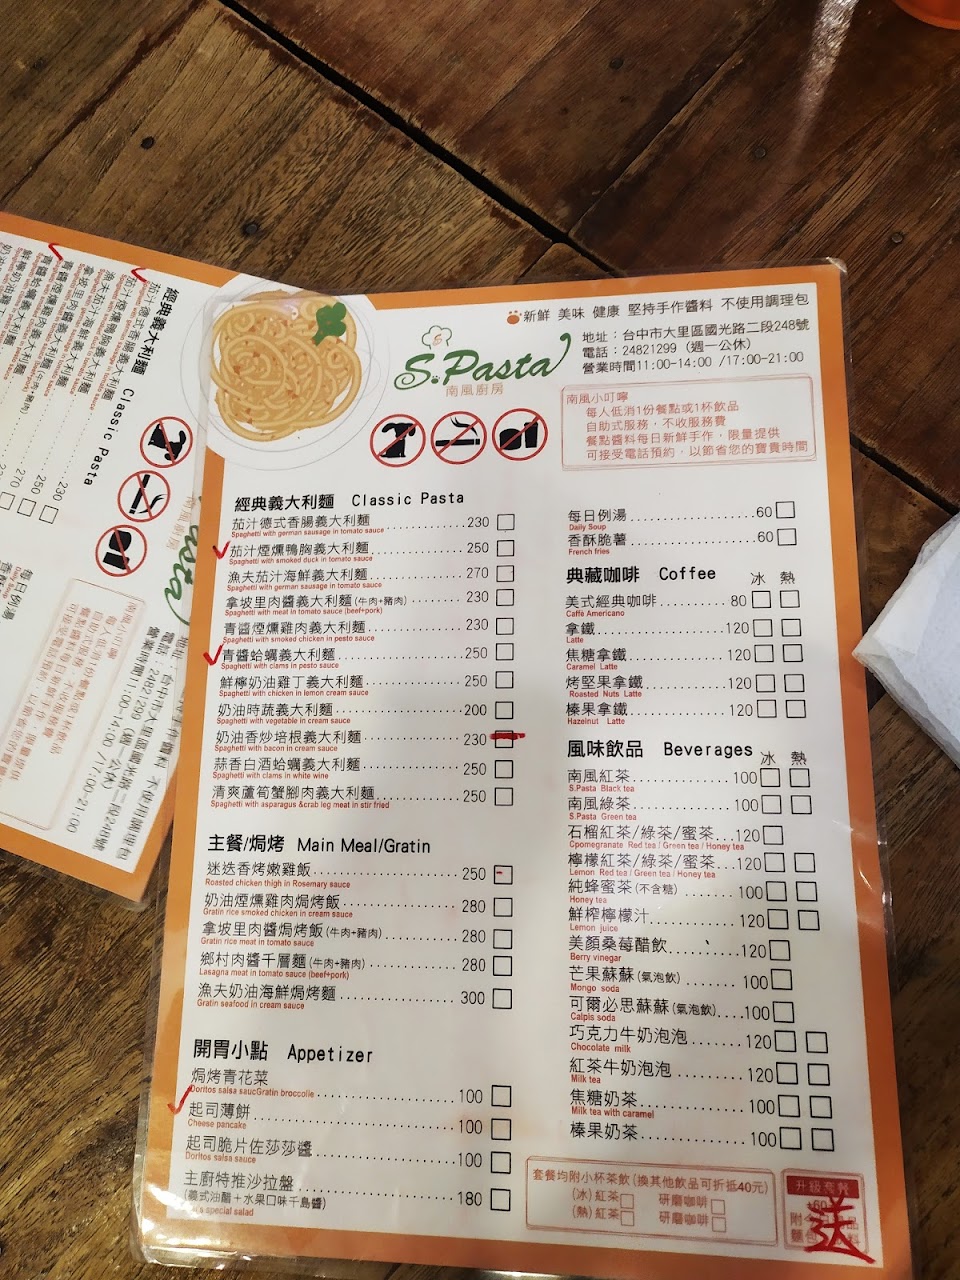 新鮮 美味 健康 堅持手作醬料 不使用調理包
地址：台中市大里區國光路二段248號
電話：24821299（週一公休）
營業時間11:00-14:00 /17:00-21:00
S.Pasta
南風廚房
南風小叮嚀
每人低消1份餐點或1杯飲品
自助式服務，不收服務費
餐點醬料每日新鮮手作，限量提供
可接受電話預約，以節省您的寶貴時間
經典義大利麵 Classic Pasta
茄汁德式香腸義大利麵 230
Spaghetti with german sausage in tomato sauce
茄汁煙燻鴨胸義大利麵 250
Spaghetti with smoked duck in tomato sauce
漁夫茄汁海鮮義大利麵 270
Spaghetti with german sausage in tomato sauce
拿坡里肉醬義大利麵(牛肉+豬肉) 230
Spaghetti with meat in tomato sauce (beef+pork)
青醬煙燻雞肉義大利麵 230
Spaghetti with smoked chicken in pesto sauce
青醬蛤蠣義大利麵 250
Spaghetti with clams in pesto sauce
鮮檸奶油雞丁義大利麵 250
Spaghetti with chicken in lemon cream sauce
奶油時蔬義大利麵 200
Spaghetti with vegetable in cream sauce
奶油香炒培根義大利麵 230
Spaghetti with bacon in cream sauce
蒜香白酒蛤蠣義大利麵 250
Spaghetti with clams in white wine
清爽蘆筍蟹腳肉義大利麵 250
Spaghetti with asparagus &crab leg meat in stir fried
主餐/焗烤 Main Meal/Gratin
迷迭香烤嫩雞飯 250
Roasted chicken thigh in Rosemary sauce
奶油煙燻雞肉焗烤飯 280
Gratin rice smoked chicken in cream sauce
拿坡里肉醬焗烤飯(牛肉+豬肉) 280
Gratin rice meat in tomato sauce
鄉村肉醬千層麵(牛肉+豬肉) 280
Lasagna meat in tomato sauce (beef+pork)
漁夫奶油海鮮焗烤麵 300
Gratin seafood in cream sauce
開胃小點 Appetizer
焗烤青花菜 100
Doritos salsa saucGratin broccolie
起司薄餅 100
Cheese pancake
起司脆片佐莎莎醬 100
Doritos salsa sauce
主廚特推沙拉盤 180
(義式油醋+水果口味千島醬)
's special salad
每日例湯 60
Daily Soup
香酥脆薯 60
French fries
典藏咖啡 Coffee 冰 熱
美式經典咖啡 80
Caffè Americano
拿鐵 120
Latte
焦糖拿鐵 120
Caramel Latte
烤堅果拿鐵 120
Roasted Nuts Latte
榛果拿鐵 120
Hazelnut Latte
風味飲品 Beverages 冰 熱
南風紅茶 100
S.Pasta Black tea
南風綠茶 100
S.Pasta Green tea
石榴紅茶/綠茶/蜜茶 120
Cpomegranate Red tea / Green tea / Honey tea
檸檬紅茶/綠茶/蜜茶 120
Lemon Red tea / Green tea / Honey tea
純蜂蜜茶(不含糖) 100
Honey tea
鮮榨檸檬汁 120
Lemon juice
美顏桑莓醋飲 120
Berry vinegar
芒果蘇蘇(氣泡飲) 100
Mongo soda
可爾必思蘇蘇(氣泡飲) 100
Calpis soda
巧克力牛奶泡泡 120
Chocolate milk
紅茶牛奶泡泡 120
Milk tea
焦糖奶茶 100
Milk tea with caramel
榛果奶茶 100
套餐均附小杯茶飲(換其他飲品可折抵40元)
(冰)紅茶 研磨咖啡
(熱)紅茶 研磨咖啡
升級套餐
送
經典義大利麵 Classic Pasta
茄汁德式香腸義大利麵 230
茄汁煙燻鴨胸義大利麵 250
漁夫茄汁海鮮義大利麵 270
拿坡里肉醬義大利麵(牛肉+豬肉)
青醬煙燻雞肉義大利麵
青醬蛤蠣義大利麵
鮮檸奶油雞丁義大利麵
每日例湯